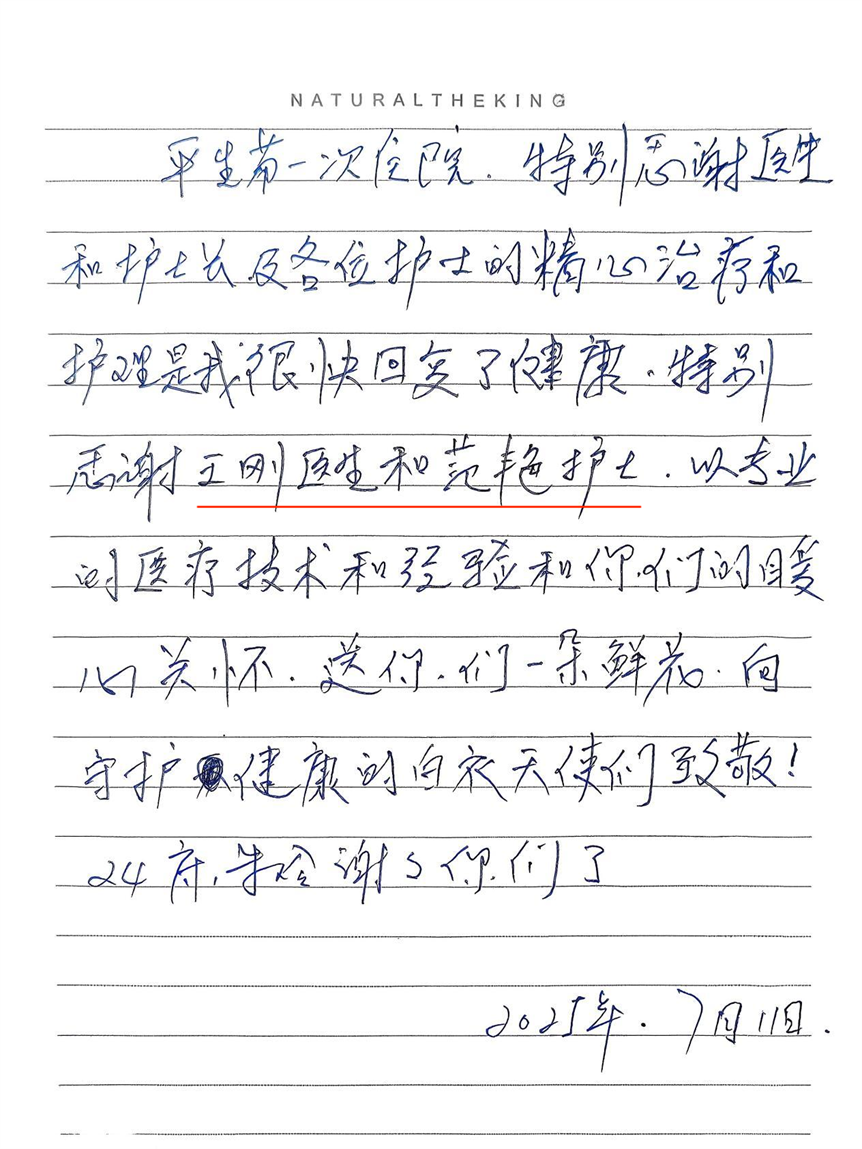 NATURALTHEKING
平生第一次住院.特别感谢医生
和护士长及各位护士的精心治疗和
护理是我很快回复了健康.特别
感谢王刚医生和范艳护士.以专业
的医疗技术和经验和你们的暖
心关怀.送你们一朵鲜花.向
守护健康的白衣天使们致敬!
24床,牛 谢谢你们了
2025年.7月11日.